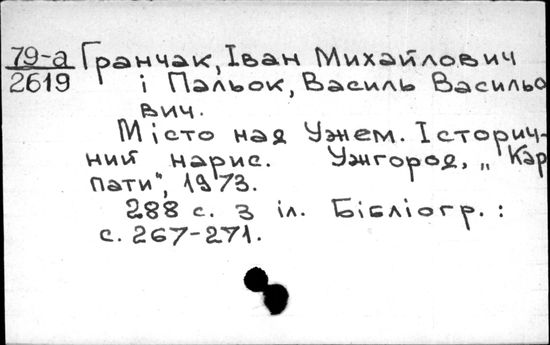 79-а Гранчак, Іван Михайлович
2619 і Пальок, Василь Васильо
вич.
Місто над Ужем. Історич-
ний нарис. Ужгород, „Кар
пати", 1973.
288 с. з іл. Бібліогр.:
с. 267-271.